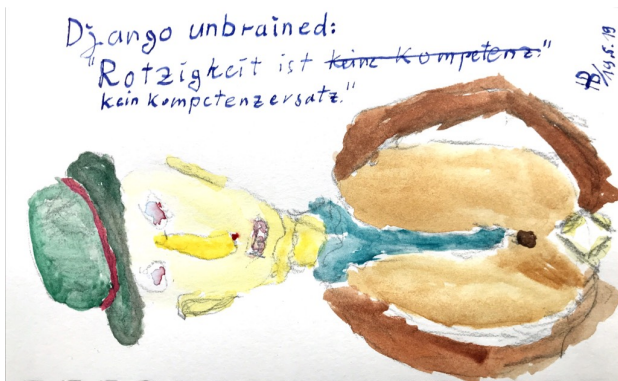 Django unbrained:
"Rotzigkeit ist keine Kompetenz."
kein Kompetenzersatz."
19.5.19